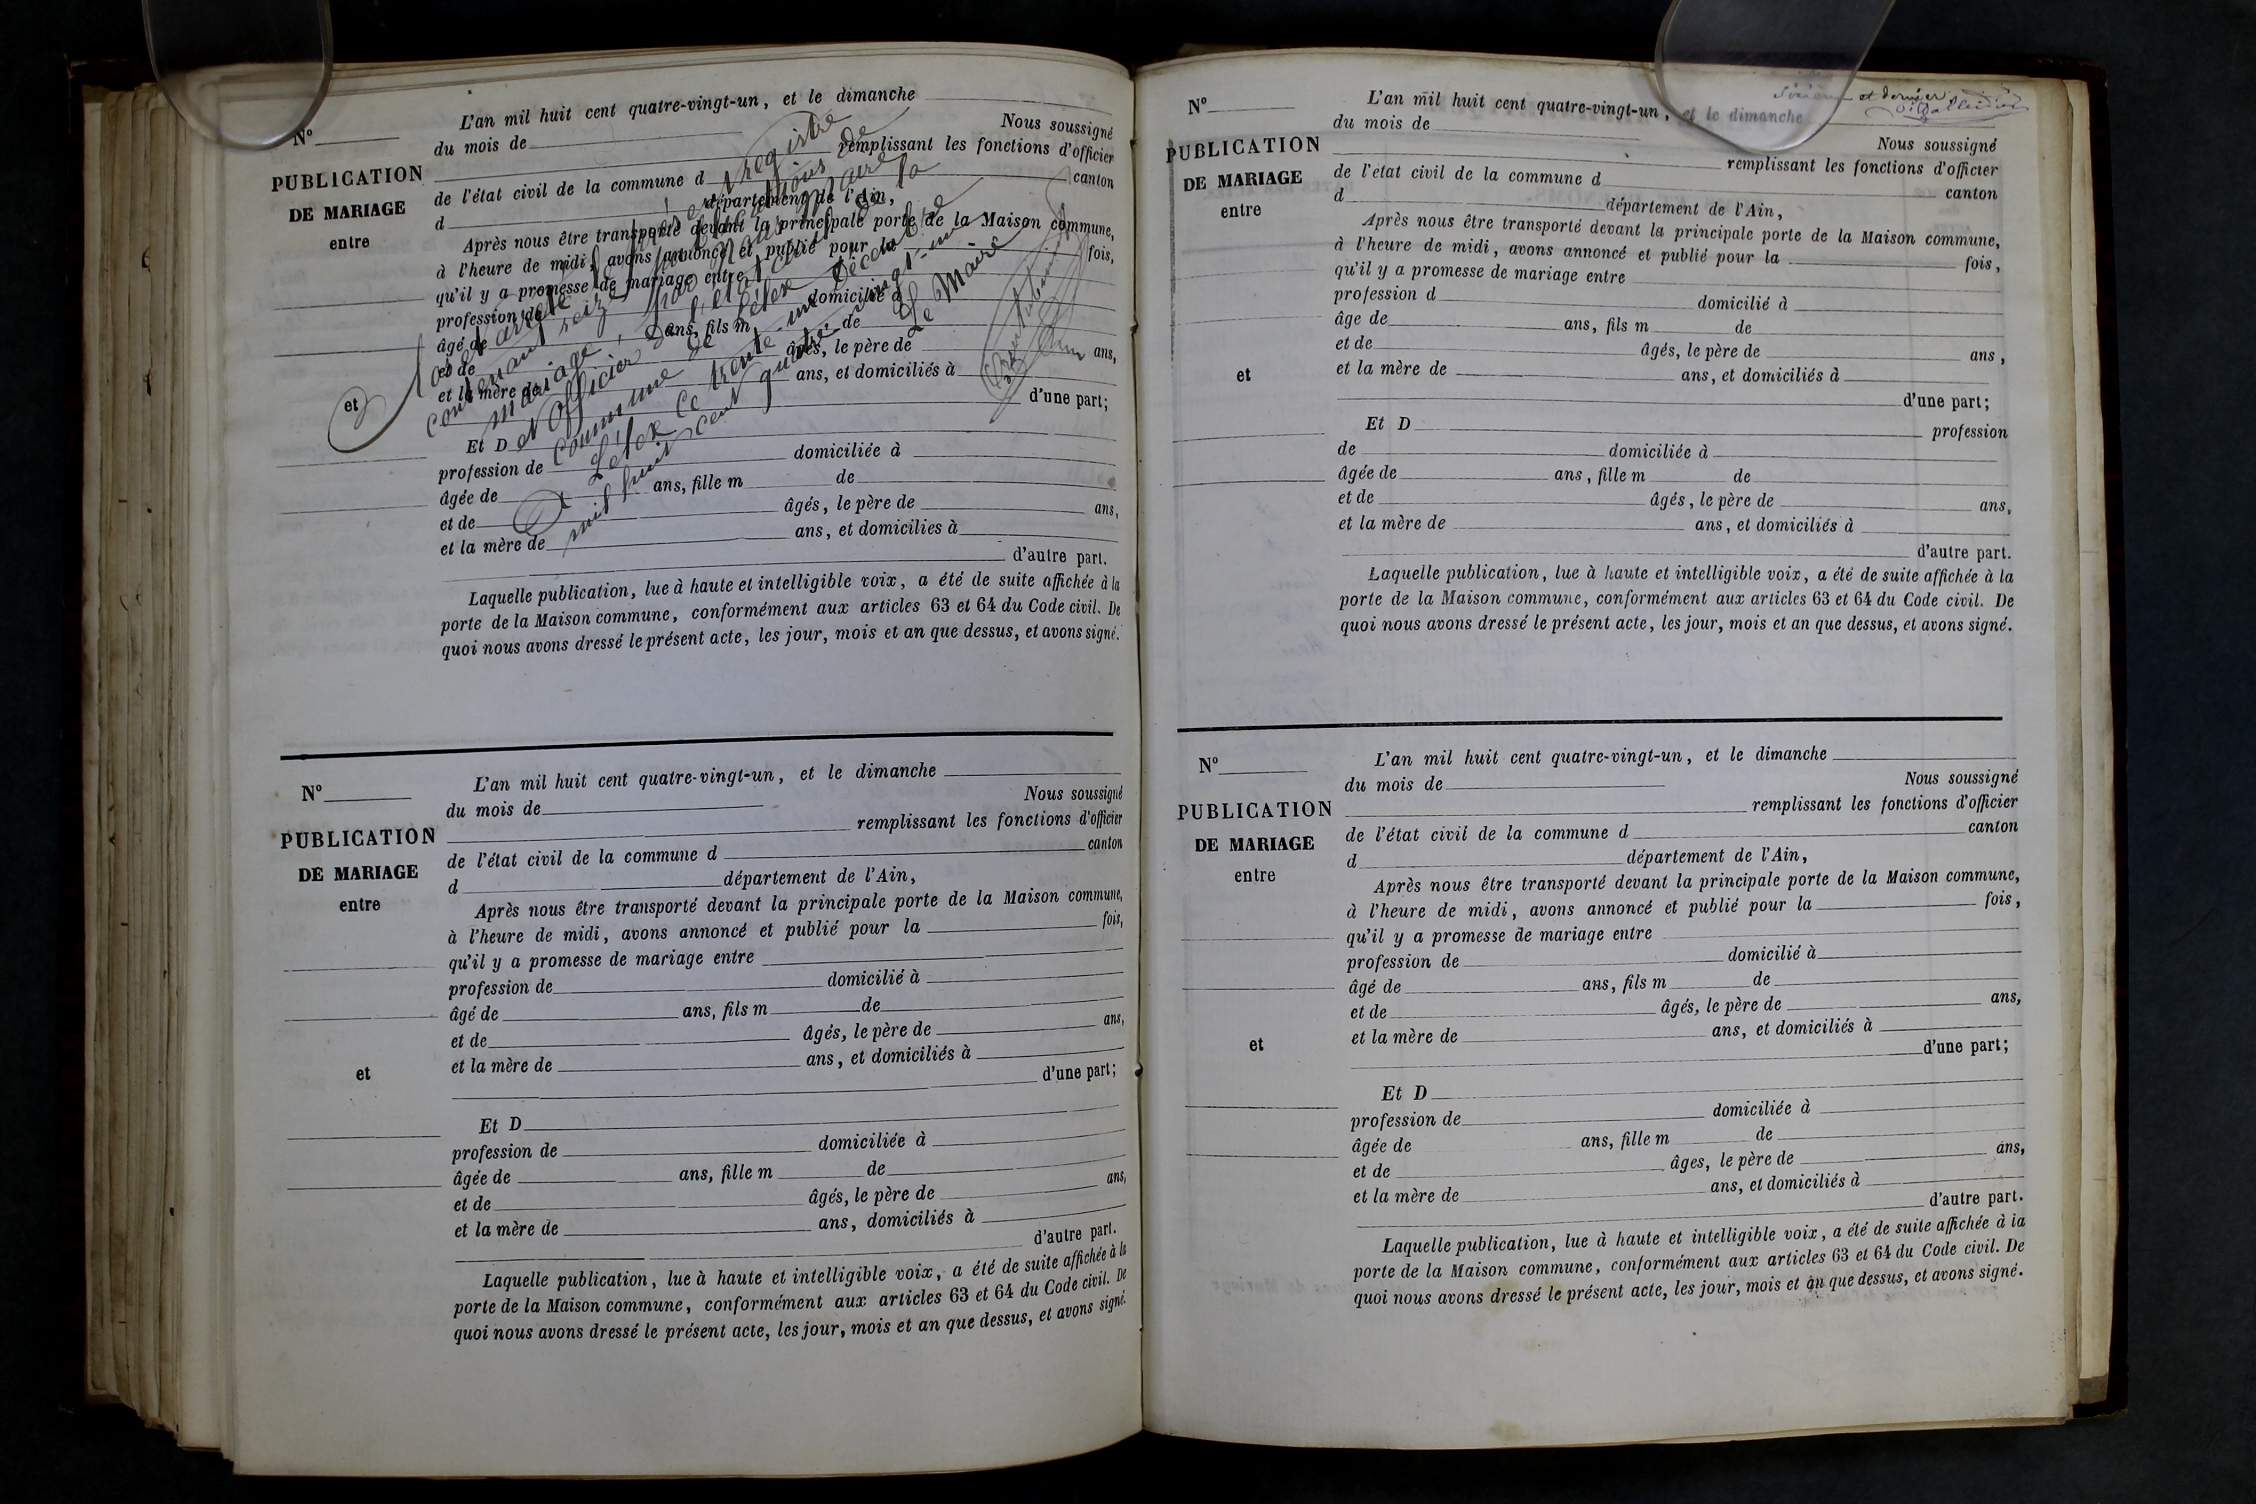 N°
PUBLICATION
DE MARIAGE
entre
et
L'an mil huit cent quatre-vingt-un, et le dimanche
du mois de
Nous soussigné
remplissant les fonctions d'officier
de l'état civil de la commune d
canton
d département de l'Ain,
Après nous être transporté devant la principale porte de la Maison commune,
à l'heure de midi, avons annoncé et publié pour la fois,
qu'il y a promesse de mariage entre
profession de domicilié à
âgé de ans, fils m de
et de âgés, le père de ans,
et la mère de ans, et domiciliés à
d'une part;
Et D
profession de domiciliée à
âgée de ans, fille m de
et de âgés, le père de ans,
et la mère de ans, et domicilies à
d'autre part.
Laquelle publication, lue à haute et intelligible voix, a été de suite affichée à la
porte de la Maison commune, conformément aux articles 63 et 64 du Code civil. De
quoi nous avons dressé le présent acte, les jour, mois et an que dessus, et avons signé.
Clos et arrêté le présent registre
contenant seize publications de
mariage, par nous maire
et officier de l'état civil de la
commune de Lélex
A Lélex ce trente-un décembre
mil huit cent quatre-vingt-un
Le Maire
N°
PUBLICATION
DE MARIAGE
entre
et
L'an mil huit cent quatre-vingt-un, et le dimanche
du mois de
Nous soussigné
remplissant les fonctions d'officier
de l'état civil de la commune d
canton
d département de l'Ain,
Après nous être transporté devant la principale porte de la Maison commune,
à l'heure de midi, avons annoncé et publié pour la fois,
qu'il y a promesse de mariage entre
profession de domicilié à
âgé de ans, fils m de
et de âgés, le père de ans,
et la mère de ans, et domiciliés à
d'une part;
Et D
profession de domiciliée à
âgée de ans, fille m de
et de âgés, le père de ans,
et la mère de ans, domiciliés à
d'autre part.
Laquelle publication, lue à haute et intelligible voix, a été de suite affichée à la
porte de la Maison commune, conformément aux articles 63 et 64 du Code civil. De
quoi nous avons dressé le présent acte, les jour, mois et an que dessus, et avons signé.
et dernier
N°
PUBLICATION
DE MARIAGE
entre
et
L'an mil huit cent quatre-vingt-un, et le dimanche
du mois de
Nous soussigné
remplissant les fonctions d'officier
de l'état civil de la commune d
canton
d département de l'Ain,
Après nous être transporté devant la principale porte de la Maison commune,
à l'heure de midi, avons annoncé et publié pour la fois,
qu'il y a promesse de mariage entre
profession d domicilié à
âge de ans, fils m de
et de âgés, le père de ans,
et la mère de ans, et domiciliés à
d'une part;
Et D profession
de domiciliée à
âgée de ans, fille m de
et de âgés, le père de ans,
et la mère de ans, et domiciliés à
d'autre part.
Laquelle publication, lue à haute et intelligible voix, a été de suite affichée à la
porte de la Maison commune, conformément aux articles 63 et 64 du Code civil. De
quoi nous avons dressé le présent acte, les jour, mois et an que dessus, et avons signé.
N°
PUBLICATION
DE MARIAGE
entre
et
L'an mil huit cent quatre-vingt-un, et le dimanche
du mois de
Nous soussigné
remplissant les fonctions d'officier
de l'état civil de la commune d
canton
d département de l'Ain,
Après nous être transporté devant la principale porte de la Maison commune,
à l'heure de midi, avons annoncé et publié pour la fois,
qu'il y a promesse de mariage entre
profession de domicilié à
âgé de ans, fils m de
et de âgés, le père de ans,
et la mère de ans, et domiciliés à
d'une part;
Et D
profession de domiciliée à
âgée de ans, fille m de
et de âges, le père de ans,
et la mère de ans, et domiciliés à
d'autre part.
Laquelle publication, lue à haute et intelligible voix, a été de suite affichée à la
porte de la Maison commune, conformément aux articles 63 et 64 du Code civil. De
quoi nous avons dressé le présent acte, les jour, mois et an que dessus, et avons signé.